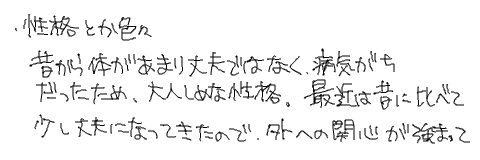 ・性格とか色々
昔から体があまり丈夫ではなく、病気がち
だったため、大人しめな性格。最近は昔に比べて
少し丈夫になってきたので、外への関心が強まって